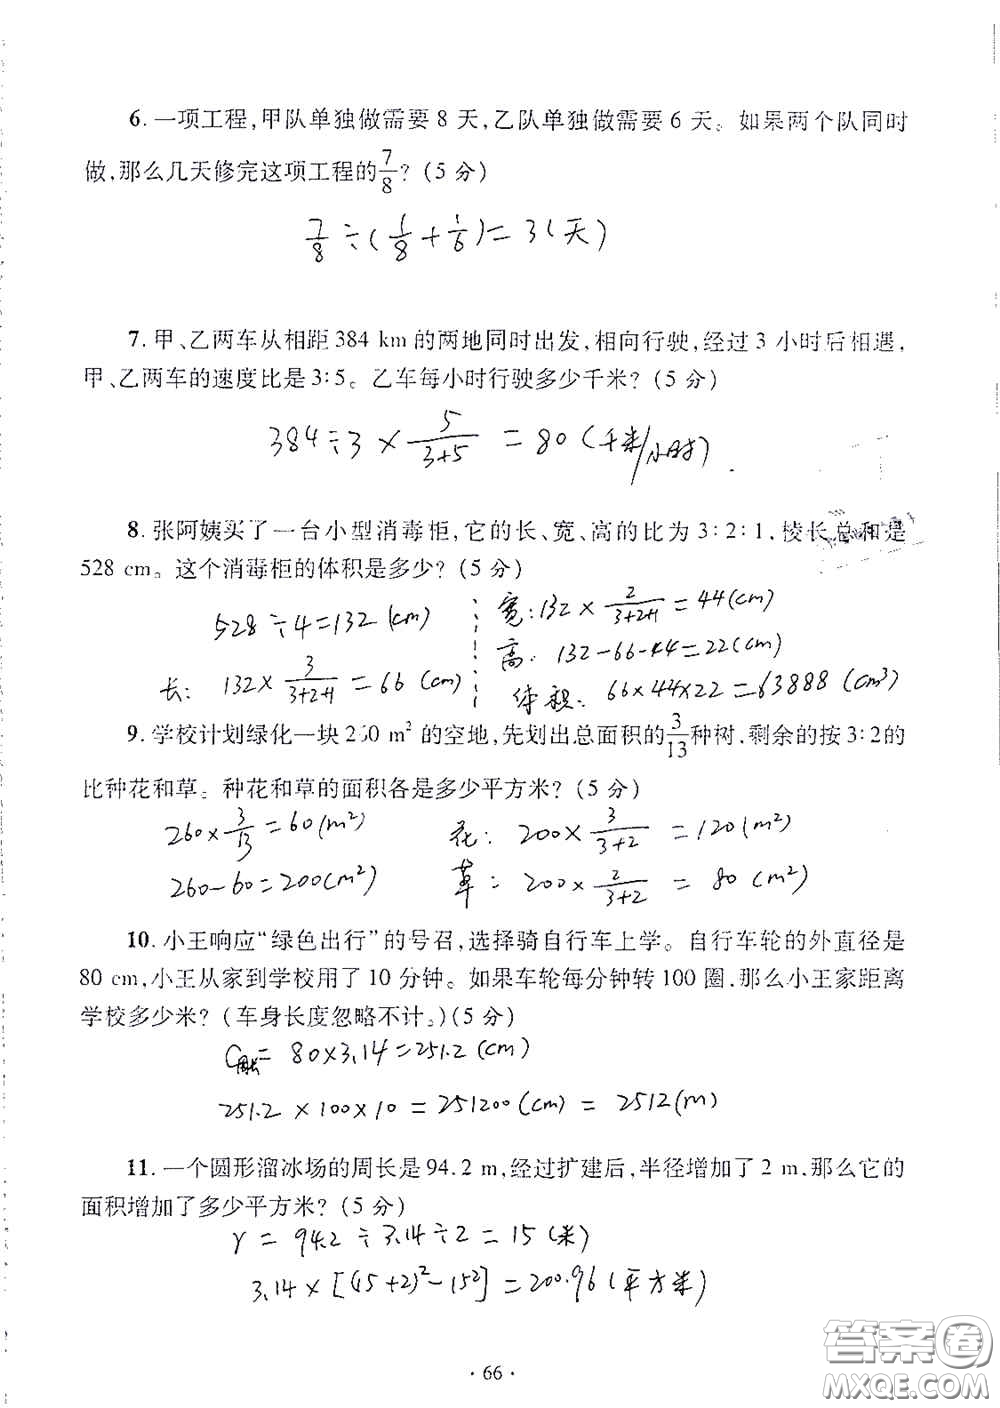 6. 一项工程,甲队单独做需要 8 天,乙队单独做需要 6 天。如果两个队同时
做,那么几天修完这项工程的7/8?(5 分)
7/8÷(1/8+1/6)=3(天)
7. 甲、乙两车从相距 384 km 的两地同时出发,相向行驶,经过 3 小时后相遇,
甲、乙两车的速度比是 3∶5。乙车每小时行驶多少千米?(5 分)
384÷3×5/(3+5)=80(千米/小时)
8. 张阿姨买了一台小型消毒柜,它的长、宽、高的比为 3∶2∶1,棱长总和是
528 cm。这个消毒柜的体积是多少?(5 分)
528÷4=132(cm)
长:132×3/(3+2+1)=66(cm)
宽:132×2/(3+2+1)=44(cm)
高:132-66-44=22(cm)
体积:66×44×22=63888(cm³)
9. 学校计划绿化一块 260 m² 的空地,先划出总面积的3/13种树,剩余的按 3∶2的
比种花和草。种花和草的面积各是多少平方米?(5 分)
260×3/13=60(m²)
260-60=200(m²)
花:200×3/(3+2)=120(m²)
草:200×2/(3+2)=80(m²)
10. 小王响应“绿色出行”的号召,选择骑自行车上学。自行车轮的外直径是
80 cm,小王从家到学校用了 10 分钟。如果车轮每分钟转 100 圈,那么小王家距离
学校多少米?(车身长度忽略不计。)(5 分)
C周长=80×3.14=251.2(cm)
251.2×100×10=251200(cm)=2512(m)
11. 一个圆形溜冰场的周长是 94.2 m,经过扩建后,半径增加了 2 m,那么它的
面积增加了多少平方米?(5 分)
r=94.2÷3.14÷2=15(米)
3.14×[(15+2)²-15²]=200.96(平方米)
答案卷
MXQE.COM
· 66 ·